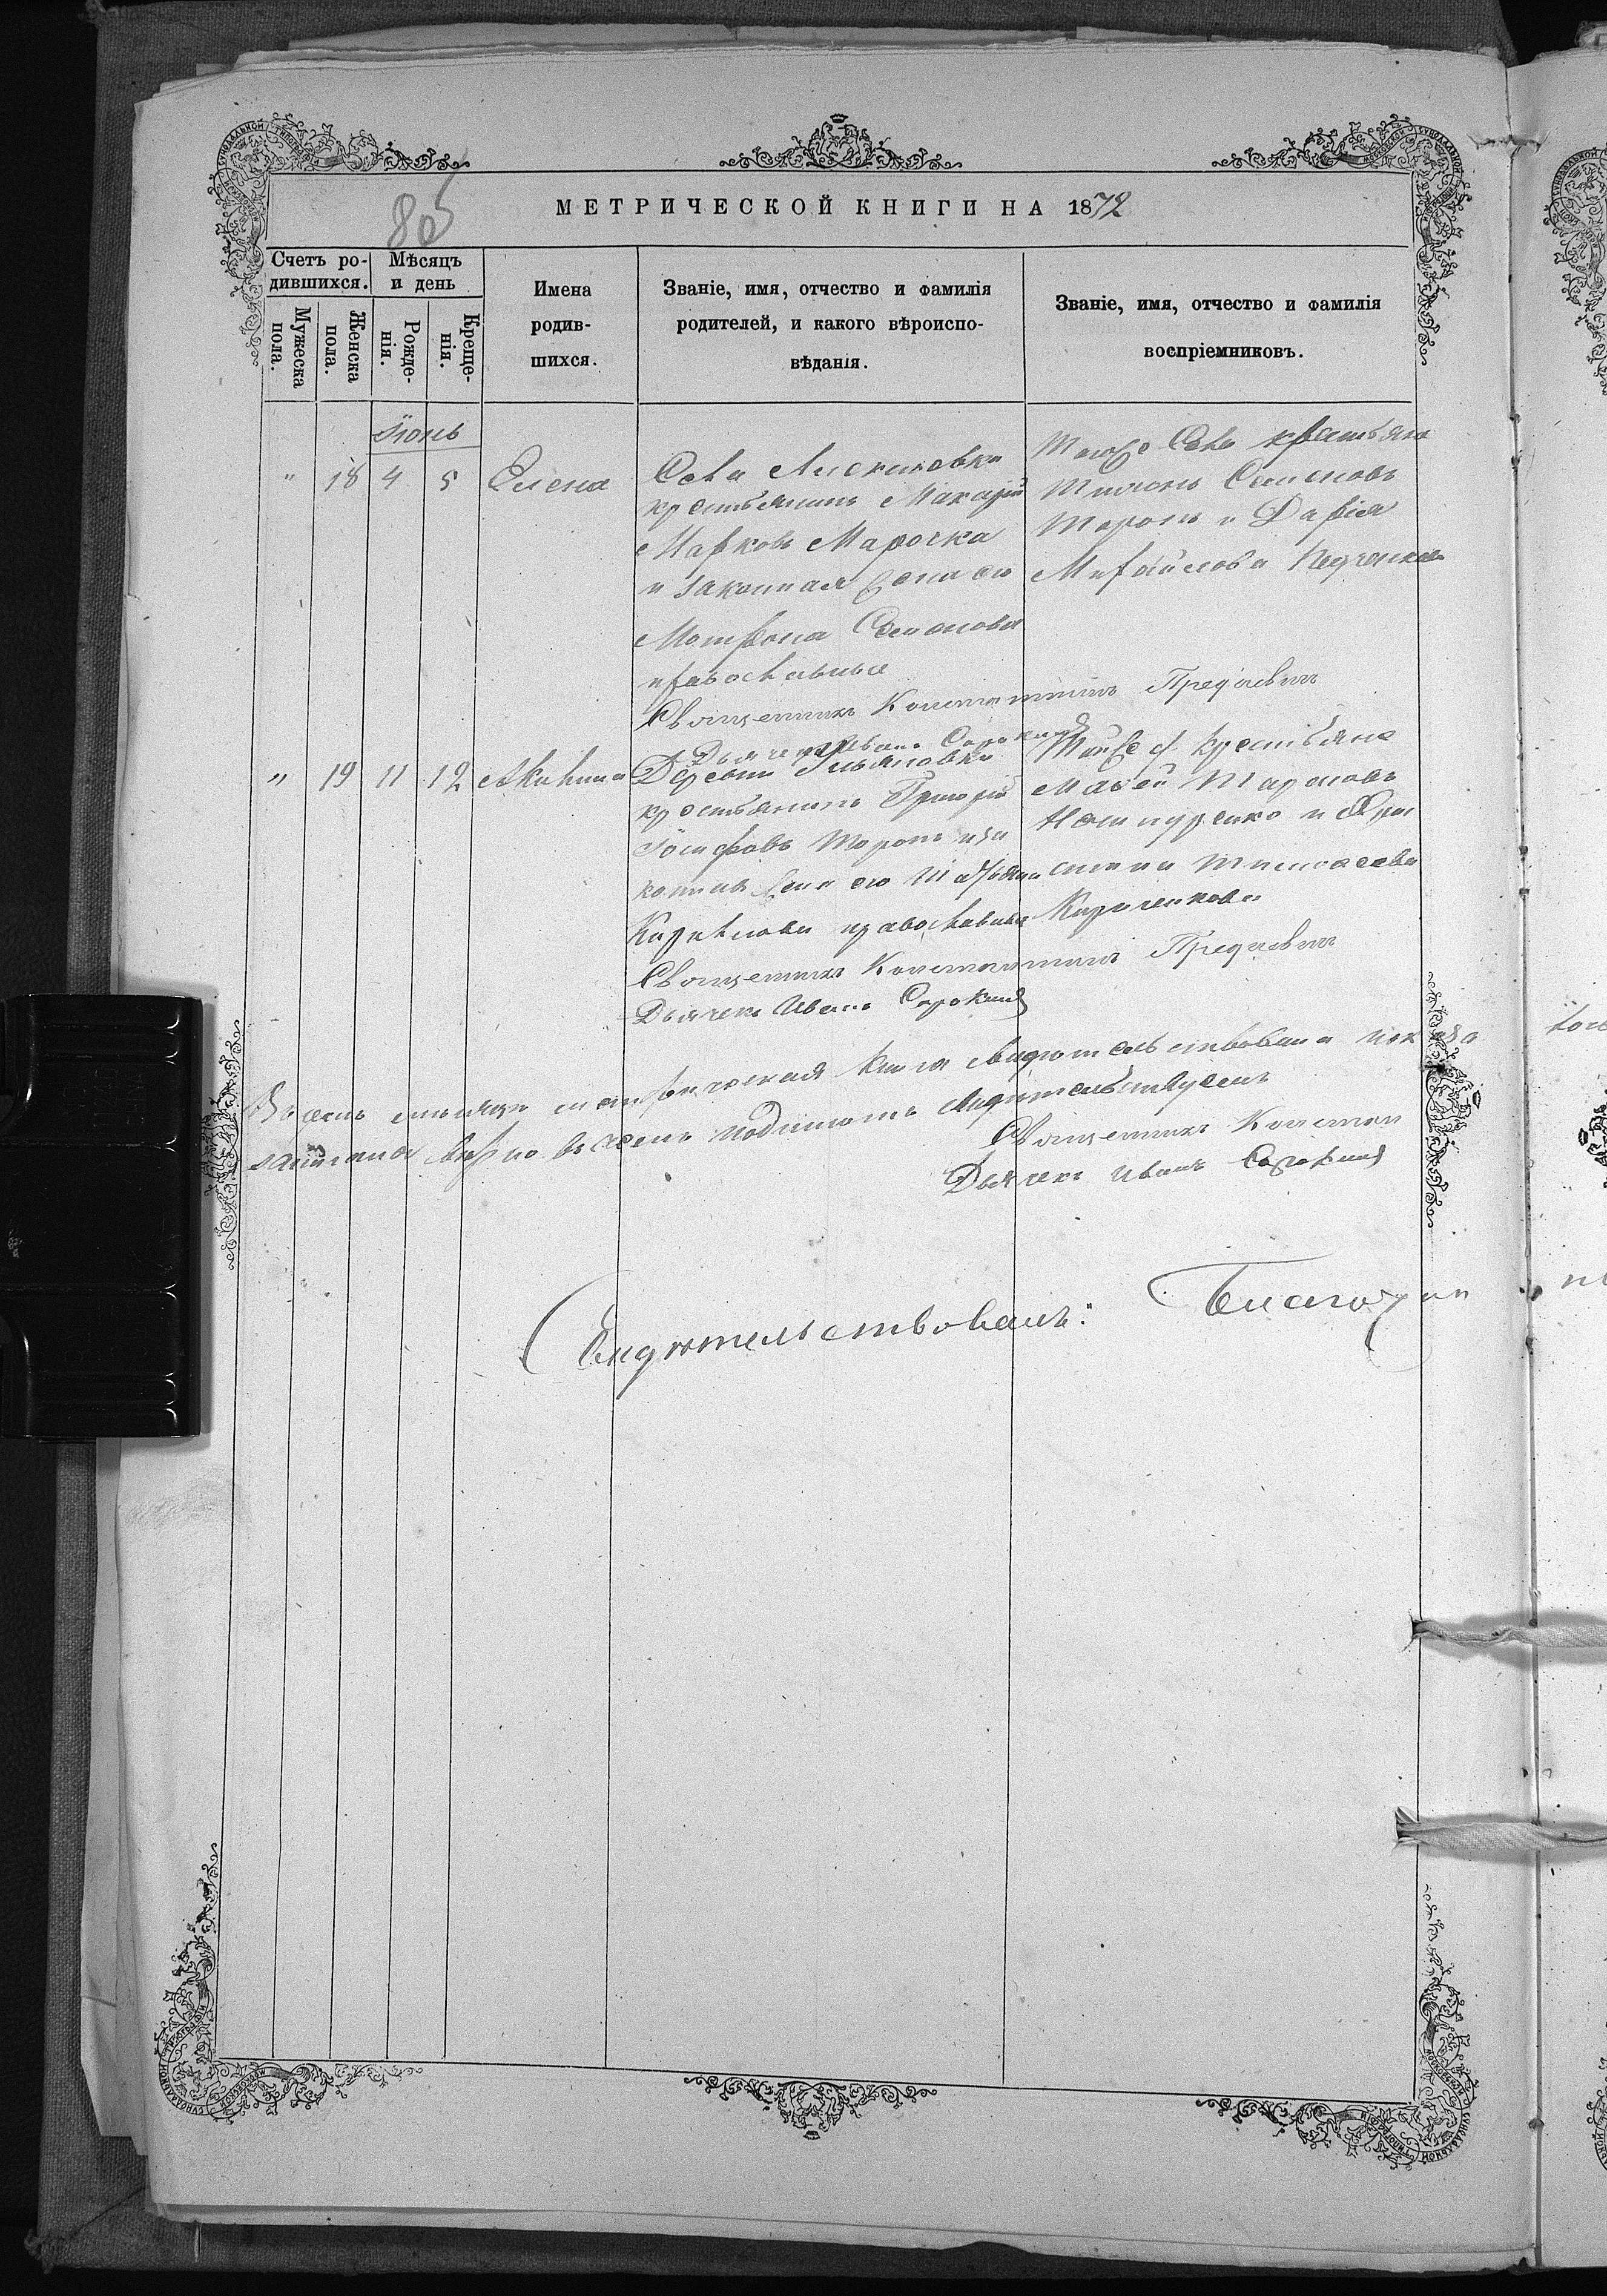 МЕТРИЧЕСКОЙ КНИГИ НА 1872
Счетъ ро-
дившихся.
Мѣсяцъ
и день
Мужеска
пола.
Женска
пола.
Рожде-
нія.
Креще-
нія.
Имена
родив-
шихся.
Званіе, имя, отчество и фамилія
родителей, и какого вѣроиспо-
вѣданія.
Званіе, имя, отчество и фамилія
воспріемниковъ.
Іюнь
" 18 4 5 Елена
Села
крестьянинъ Макарій
Марковъ Марочка
и законная жена его
Матрона Семенова
православные
Тогоже Села крестьяне
Тимонъ Семеновъ
Торопъ и Дарія
Михайлова
Священникъ Константинъ
Дьячекъ Иванъ Сорокинъ
" 19 11 12 Акилина
Деревни Ульяновки
крестьянинъ Григорій
Іосифовъ Торопъ и за
конная жена его
Кирилова православные
Тойже д. крестьяне
Марковъ
и Хри
стина Тимофеева
Кириченкова
Священникъ Константинъ
Дьячекъ Иванъ Сорокинъ
Въ семъ мѣсяцѣ метрическая книга свидѣтельствована и
записана вѣрно въ чемъ подписомъ свидѣтельствуемъ
Священникъ Констан
Дьячекъ Иванъ Сорокинъ
Свидѣтельствовалъ: Благочин